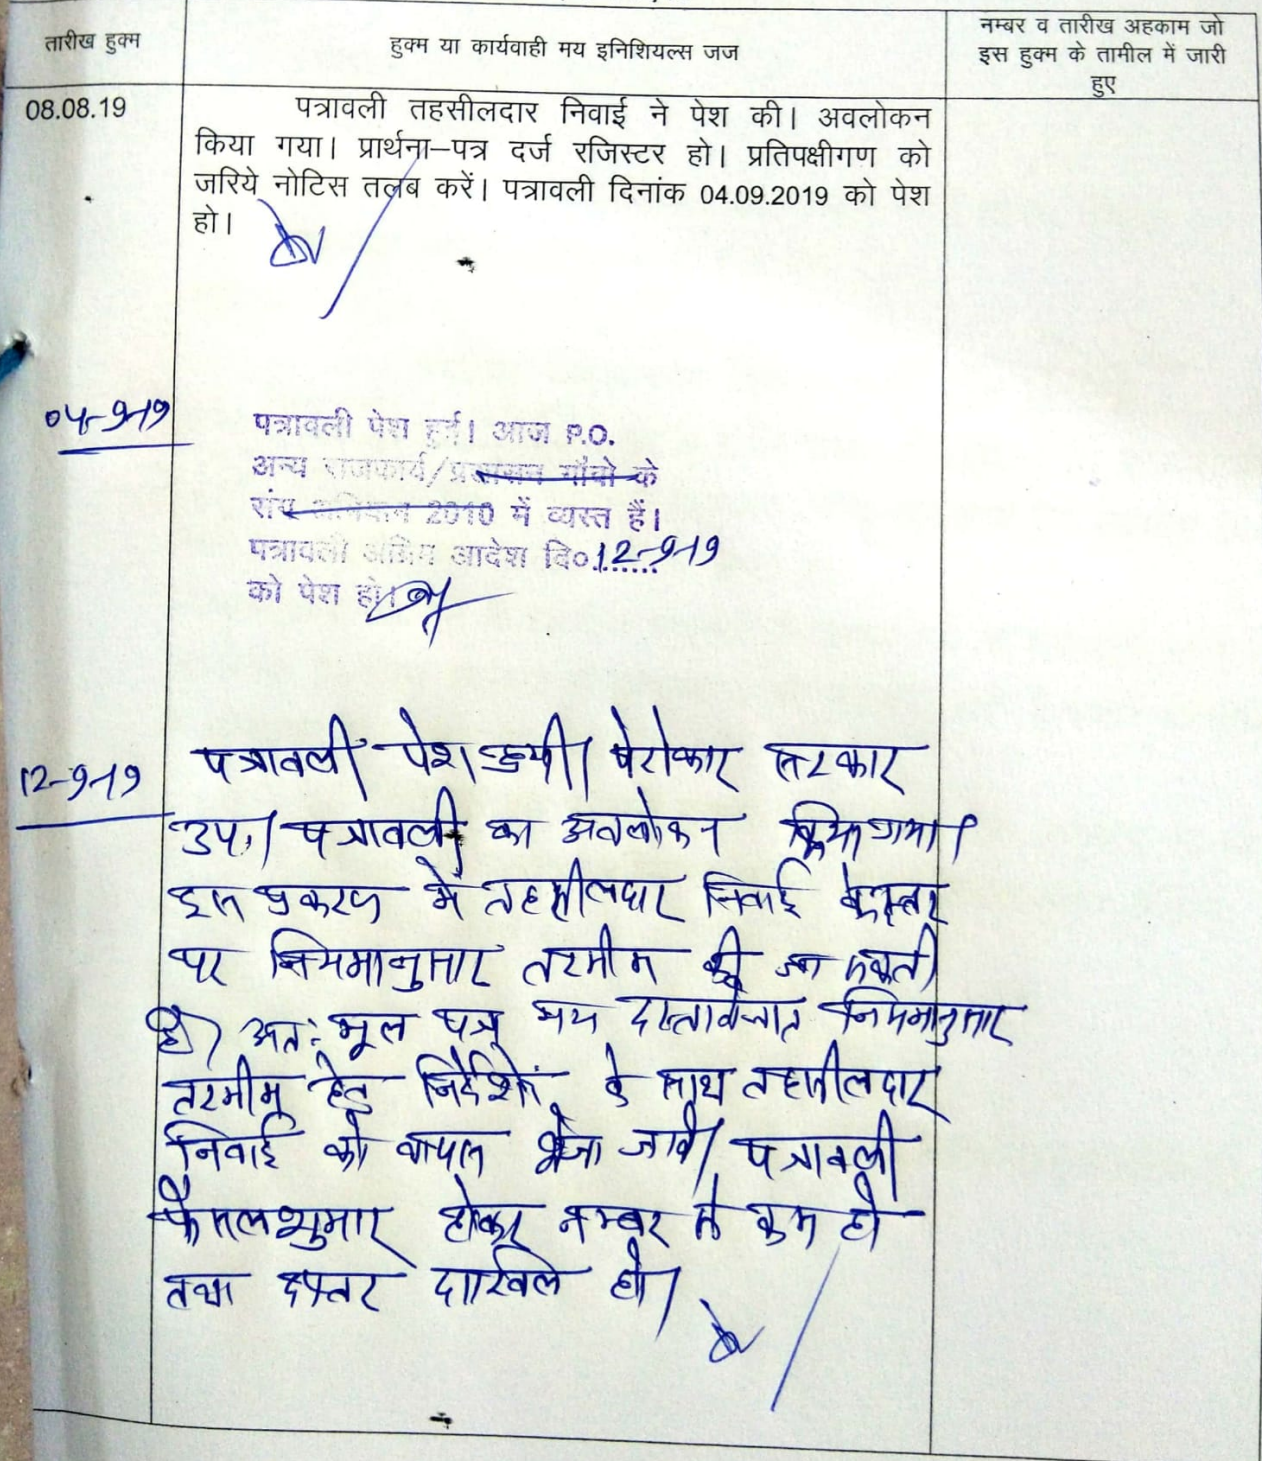 तारीख हुक्म
हुक्म या कार्यवाही मय इनिशियल्स जज
नम्बर व तारीख अहकाम जो
इस हुक्म के तामील में जारी
हुए
08.08.19
पत्रावली तहसीलदार निवाई ने पेश की। अवलोकन
किया गया। प्रार्थना–पत्र दर्ज रजिस्टर हो। प्रतिपक्षीगण को
जरिये नोटिस तलब करें। पत्रावली दिनांक 04.09.2019 को पेश
हो।
04-9-19
पत्रावली पेश हुई। आज P.O.
अन्य राजकार्य/प्रशासन गाँवो के
संग अभियान 2010 में व्यस्त हैं।
पत्रावली अग्रिम आदेश दि० 12-9-19
को पेश हो।
12-9-19
पत्रावली पेश हुयी। पेरोकार सरकार
उप.। पत्रावली का अवलोकन किया गया।
इस प्रकरण में तहसीलदार निवाई के स्तर
पर नियमानुसार तरमीम की जा सकती
है। अतः मूल पत्र मय दस्तावेजात नियमानुसार
तरमीम हेतु निर्देशों के साथ तहसीलदार
निवाई को वापस भेजा जावे। पत्रावली
फैसलशुमार होकर नम्बर से कम हो
तथा दफ्तर दाखिल हो।